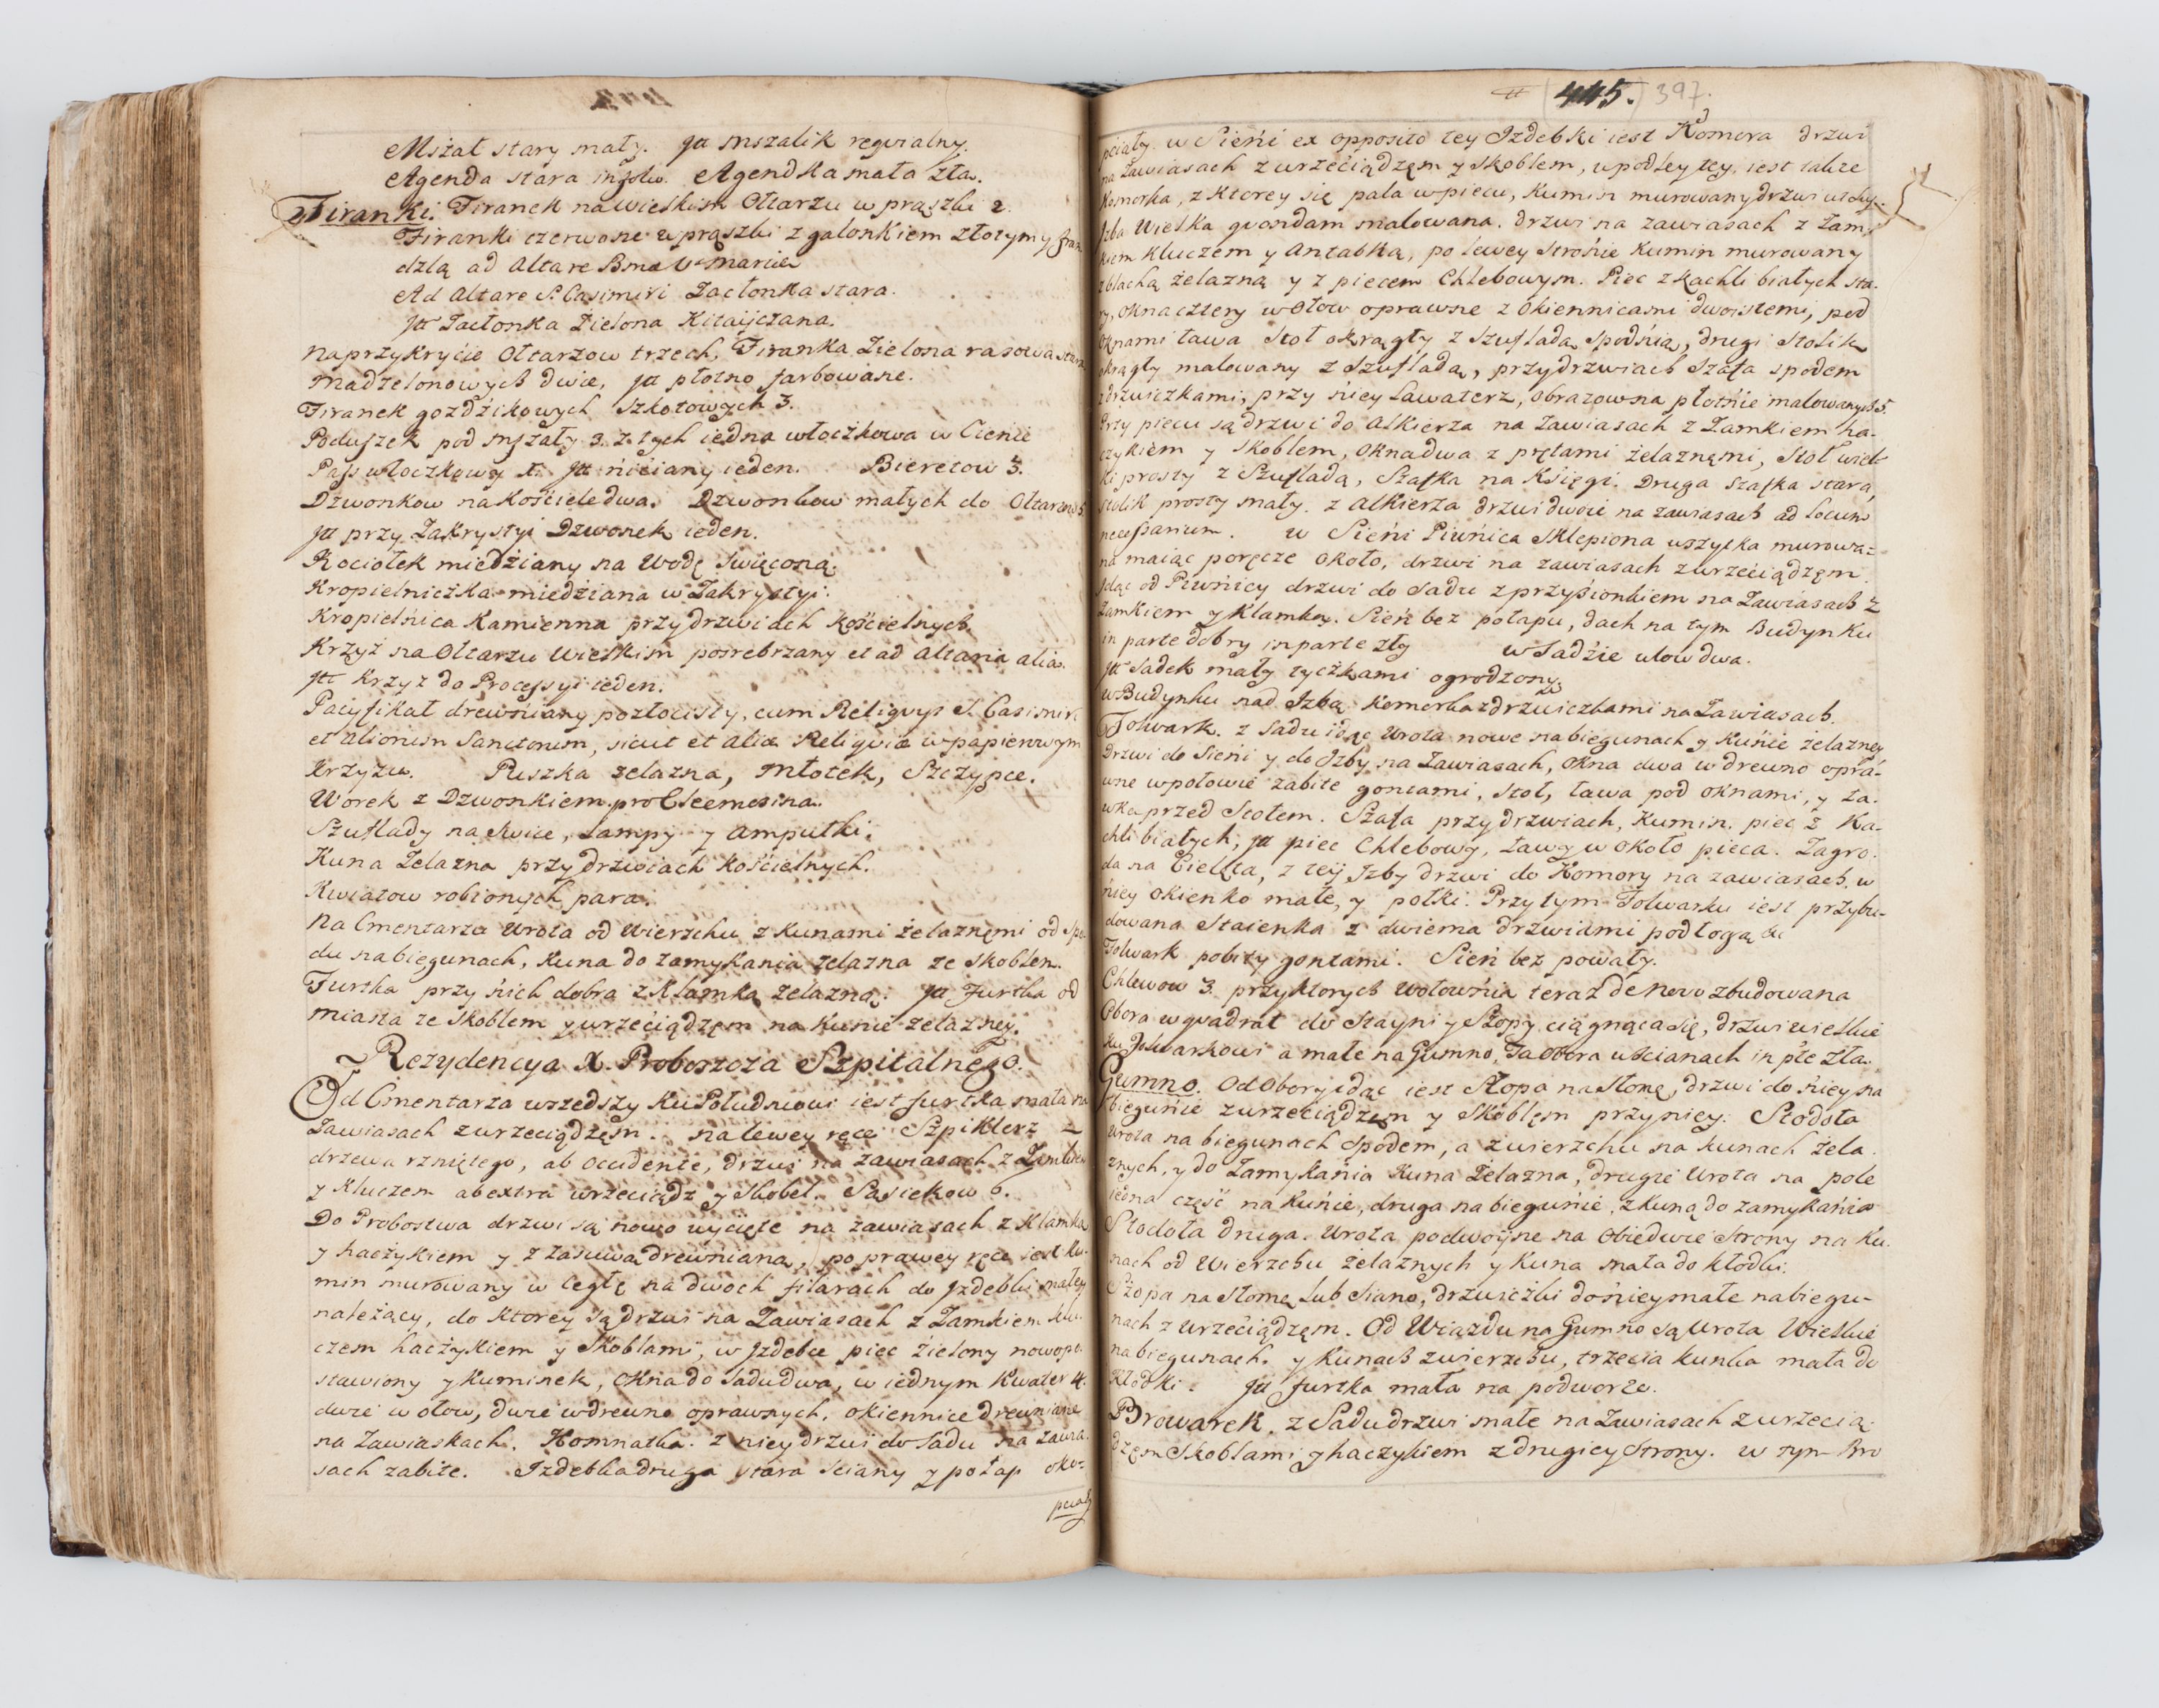 Mszał stary mały. Jtt mszalik requialny.
Agenda stara in folio. Agendka mała zła.
Firanki. Firanek na wielkim Ołtarzu w prążki 2.
Firanki czerwone w prążki z galonkiem złotym y fran
dzlą ad Altare Bmæ V. Mariæ
Ad Altare S. Casimiri Zasłonka stara.
Jtt Zasłonka Zielona Kitayczana.
Na przykrycie Ołtarzow trzech, Firanka Zielona rasowa stara
dwie, Jtt płotno farbowane.
Firanek gozdźikowych Szkotowych 3.
Poduszek pod mszały 3. z tych iedna włoczkowa w Cienie
Pass włoczkowy 1. Jtt nićiany ieden. Bieretow 3.
Dzwonkow na Kościele dwa. Dzwonkow małych do Ołtarzow 5.
Jtt przy Zakrystyi Dzwonek ieden.
Kociołek miedźiany na Wodę Swięconą.
Kropielniczka miedźiana w Zakrystyi.
Kropielńica Kamienna przy drzwiach Kościelnych.
Krzyż na Ołtarzu Wielkim posrebrzany et ad Altaria alia.
Jtt Krzyz do Processyi ieden.
Pacyfikał drewńiany pozłocisty, cum Reliquys S. Casimiri
et aliorum Sanctorum, sicut et aliæ Reliquiæ w papierowym
Krzyzu. Puszka zelazna, Młotek, Szczypce.
Worek z Dzwonkiem pro Eleemosina.
Szuflady na Swice, Lampy y ampułki.
Kuna Zelazna przy drzwiach Kościelnych.
Kwiatow robionych para.
Na Cmentarza Wrota od Wierzchu z Kunami żelaznęmi od spo
du na biegunach, Kuna do zamykania zelazna ze skoblem.
Furtka przy nich dobra z Klamką zelazną. Jtt Furtka od
miasta ze skoblem y wrzećiądzęm na Kunie zelazney.
Rezydencya X. Proboszcza Szpitalnego.
Od Cmentarza wszedszy Ku Południowi iest furtka mała na
Zawiasach z wrzeciądzęm. na lewey ręce Szpiklerz z
drzewa rzniętego, ab Occidente, drzwi na zawiasach z Zamkiem
y Kluczem ab extra wrzeciądz y skobel. Sąsiekow 6.
Do Probostwa drzwi są nowo wycięte na zawiasach z Klamką
y haczykiem y z zasuwą drewnianą, po prawey ręce iest Ku-
min murowany w Cegłę na dwoch filarach do Jzdebki małey
należący, do Ktorey są drzwi na Zawiasach z Zamkiem klu-
czem haczykiem y Skoblami, w Jzdebce piec źielony nowo po-
stawiony y Kuminek, Okna do Sadu dwa, w iednym Kwater 4.
dwie w ołow, dwie w drewno oprawnych, okiennice drewniane
na Zawiaskach. Komnatka. z niey drzwi do Sadu na zawia-
sach zabite. Izdebka druga stara ściany y połap oko=
pciały
445. 397.
pciały. w Sieńi ex opposito tey Izdebki iest Komora drzwi
na Zawiasach z wrzećiądzęm y skoblem, wpodley tey iest także
Komorka, z Ktorey się pala w piecu, Kumin murowany drzwi
Jzba Wielka quondam malowana. drzwi na zawiasach z Zam-
kiem Kluczem y Antabką, po lewey stronie Kumin murowany
z blachą żelazną y z piecem Chlebowym. Piec z kachli białych sta-
ry, Okna cztery w Ołow oprawne z Okiennicami dwoistemi, pod
Oknami ława Stoł okrągły z Szufladą Spodnią, drugi Stolik
okrągły malowany z szufladą, przy drzwiach Szafa spodem
z drzwiczkami, przy niey Lawaterz, Obrazow na płotńie malowanych 5.
Przy piecu są drzwi do Alkierza na Zawiasach z Zamkiem ha-
czykiem y skoblem, okna dwa z prętami żelaznęmi, Stoł wiel-
ki prosty z Szufladą, Szafka na Księgi. Druga szafka stara,
stolik prosty mały. z Alkierza drzwi dwoie na zawiasach ad locum
necessarium. w Sieńi Piwńica Sklepiona wszytka murowa=
na maiąc poręcze około, drzwi na zawiasach z wrzećiądzęm.
Jdąc od Piwnicy drzwi do Sadu z przysionkiem na Zawiasach z
Zamkiem y Klamką. Sień bez połapu, dach na tym Budynku
in parte dobry in parte zły w Sadźie ulow dwa.
Jtt Sadek mały tyczkami ogrodzony.
w Budynku nad Izbą Komorka z drzwiczkami na Zawiasach.
Folwark. z Sadu idąc Wrota nowe na biegunach y Kuńie żelazney
Drzwi do Sieńi y do Jzby na Zawiasach, Okna dwa w drewno opra-
wne w połowie zabite gontami, Stoł, ława pod oknami, y ła-
wka przed Stołem. Szafa przy drzwiach, Kumin, piec z Ka-
chli białych, Jtt piec Chlebowy, Ławy w około pieca. Zagro-
da na Cielęta, z tey Jzby drzwi do Komory na zawiasach, w
niey okienko małe, y połki. Przy tym Folwarku iest przybu-
dowana Staienka z dwiema drzwiami podłogą
Folwark pobity gontami. Sień bez powały.
Chlewow 3. przy ktorych Wołowńia teraz de novo zbudowana
Obora w quadrat do Stayni y Szopy ciągnąca się, drzwi wielkie
ku Folwarkowi a małe na Gumno, Ta Obora w ścianach in pte zła.
Gumno. Od Obory idąc iest Szopa na Słomę, drzwi do niey na
biegunie z wrzeciądzęm y Skoblęm przy niey. Stodoła
Wrota na biegunach spodem, a zwierzchu na kunach żela-
znych, y do Zamykania Kuna Zelazna, drugie Wrota na pole
iedna część na Kuńie, druga na biegunie, z Kuną do zamykania
Stodoła druga. Wrota podwoyne na obiedwie strony na Ku-
nach od Wierzchu żelaznych y Kuna mała do kłodki.
Szopa na Słomę lub Siano, drzwiczki do niey małe na biegu-
nach z wrzećiądzęm. Od Wiazdu na Gumno są Wrota Wielkie
na biegunach y Kunach zwierzchu, trzecia kunka mała do
Kłodki. Jtt furtka mała na podworze.
Browarek. z Sadu drzwi małe na Zawiasach z wrzecią-
dzęm Skoblami y haczykiem z drugiey strony. w tym Bro